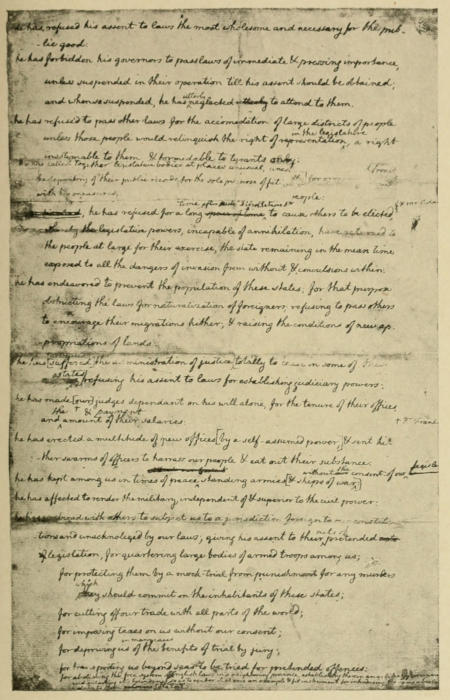 he has refused his assent to laws the most wholesome and necessary for the pub-
-lic good:
he has forbidden his governors to pass laws of immediate & pressing importance,
unless suspended in their operation till his assent should be obtained;
and when suspended, he has neglected utterly to attend to them.
he has refused to pass other laws for the accomodation of large districts of people
unless those people would relinquish the right of representation in the legislature, a right
inestimable to them & formidable to tyrants only:
he has called together legislative bodies at places unusual, 
the depository of their public records for the sole purpose of
with his measures;
people:
time after such dissolutions
he has refused for a long space of time to cause others to be elected
whereby the legislative powers, incapable of annihilation, have returned to
the people at large for their exercise, the state remaining in the mean time
exposed to all the dangers of invasion from without & convulsions within:
he has endeavored to prevent the population of these states; for that purpose
obstructing the laws for naturalization of foreigners; refusing to pass others
to encourage their migrations hither; & raising the conditions of new ap-
propriations of lands:
he has suffered the administration of justice totally to cease in some of these
states, refusing his assent to laws for establishing judiciary powers:
he has made [our] judges dependant on his will alone, for the tenure of their offices,
the & payment
and amount of their salaries:
he has erected a multitude of new offices [by a self-assumed power,] & sent hi-
ther swarms of officers to harrass our people & eat out their substance:
without the consent of our legisla
he has kept among us in times of peace standing armies [& ships of war]
he has affected to render the military, independent of & superior to the civil power:
he has combined with others to subject us to a jurisdiction foreign to our constitu-
tions and unacknoleged by our laws; giving his assent to their pretended acts
of legislation, for quartering large bodies of armed troops among us;
for protecting them by a mock-trial from punishment for any murders
which
they should commit on the inhabitants of these states;
for cutting off our trade with all parts of the world;
for imposing taxes on us without our consent;
in many cases
for depriving us of the benefits of trial by jury;
for transporting us beyond seas to be tried for pretended offences:
for abolishing the free system of English laws in a neighboring province, establishing therein an arbitrary government